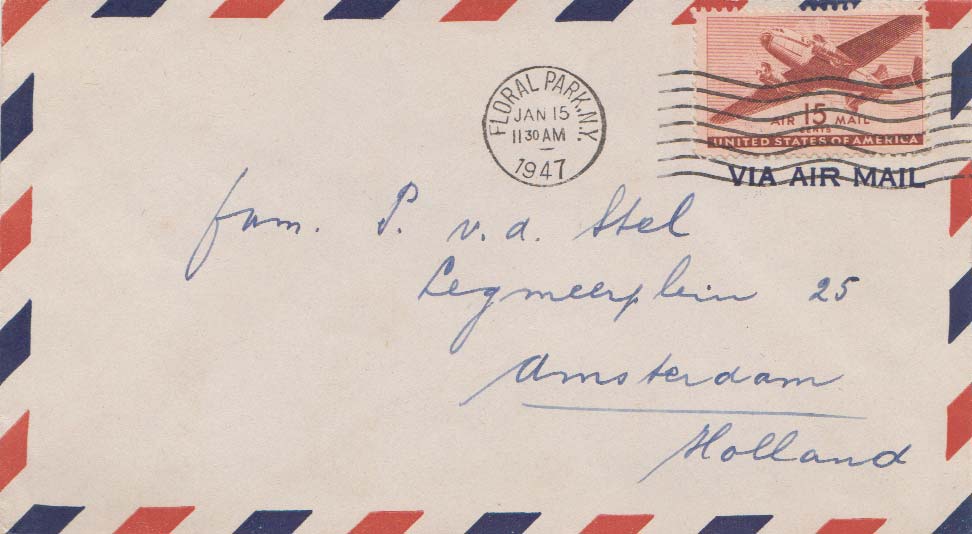 FLORAL PARK, N.Y.
JAN 15
11 30 AM
1947
AIR 15 MAIL
CENTS
UNITED STATES OF AMERICA
VIA AIR MAIL
fam. P. v.d. Stel
Legmeerplein 25
Amsterdam
Holland